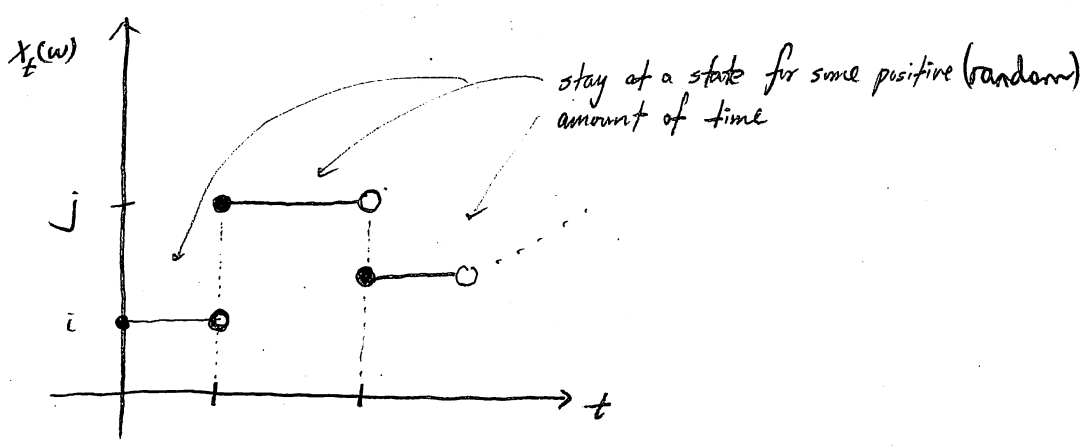 X_t(ω)
stay at a state for some positive (random)
amount of time
j
i
t